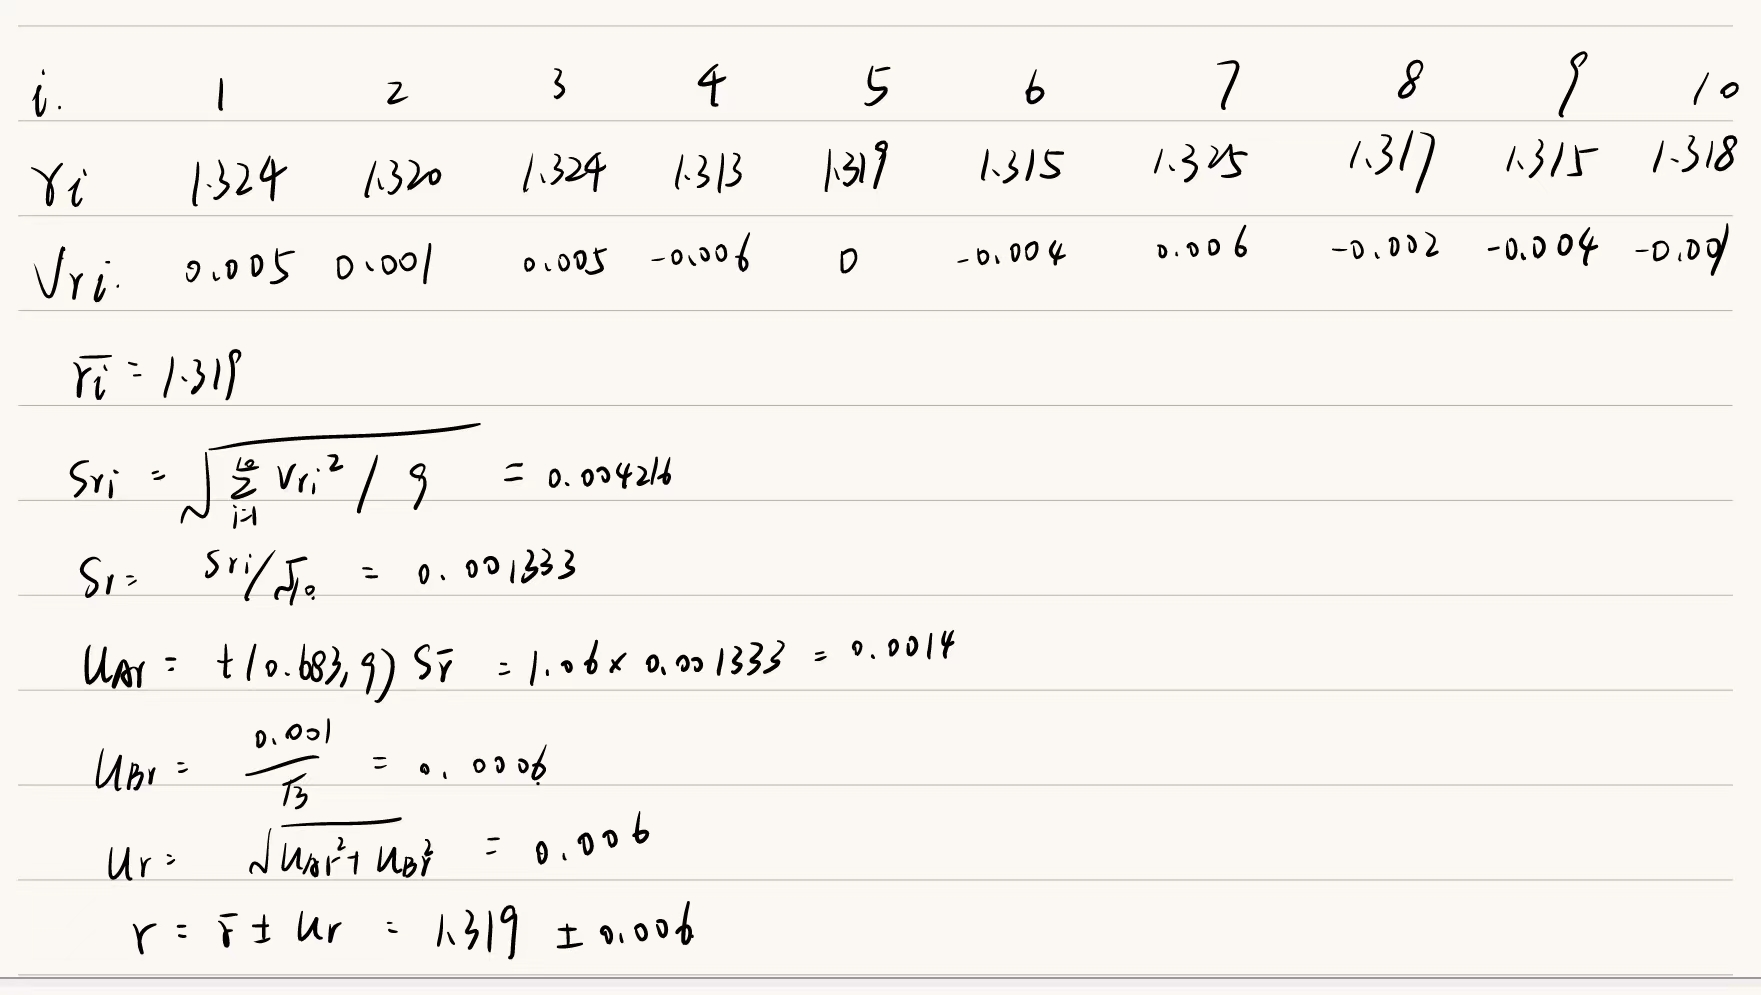 i. 1 2 3 4 5 6 7 8 9 10
ri 1.324 1.320 1.324 1.313 1.319 1.315 1.325 1.317 1.315 1.318
Vri. 0.005 0.001 0.005 -0.006 0 -0.004 0.006 -0.002 -0.004 -0.001
r̅i̅ = 1.319
Sri = √(∑_{i=1}^{10} Vri² / 9) = 0.004216
Sr = Sri/√10 = 0.001333
UAr = t(0.683, 9) Sr̅ = 1.06 × 0.001333 = 0.0014
UBr = 0.001/√3 = 0.0006
Ur = √(UAr² + UBr²) = 0.006
r = r̅ ± Ur = 1.319 ± 0.006